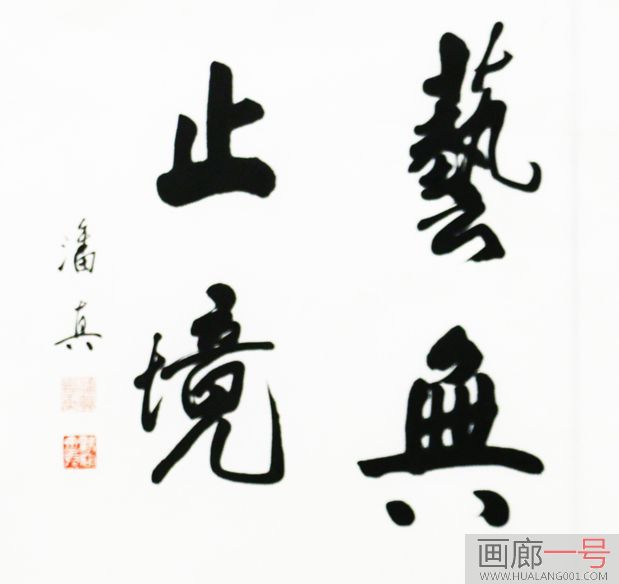 藝無
止境
潘真
画廊一号
WWW.HUALANG001.COM